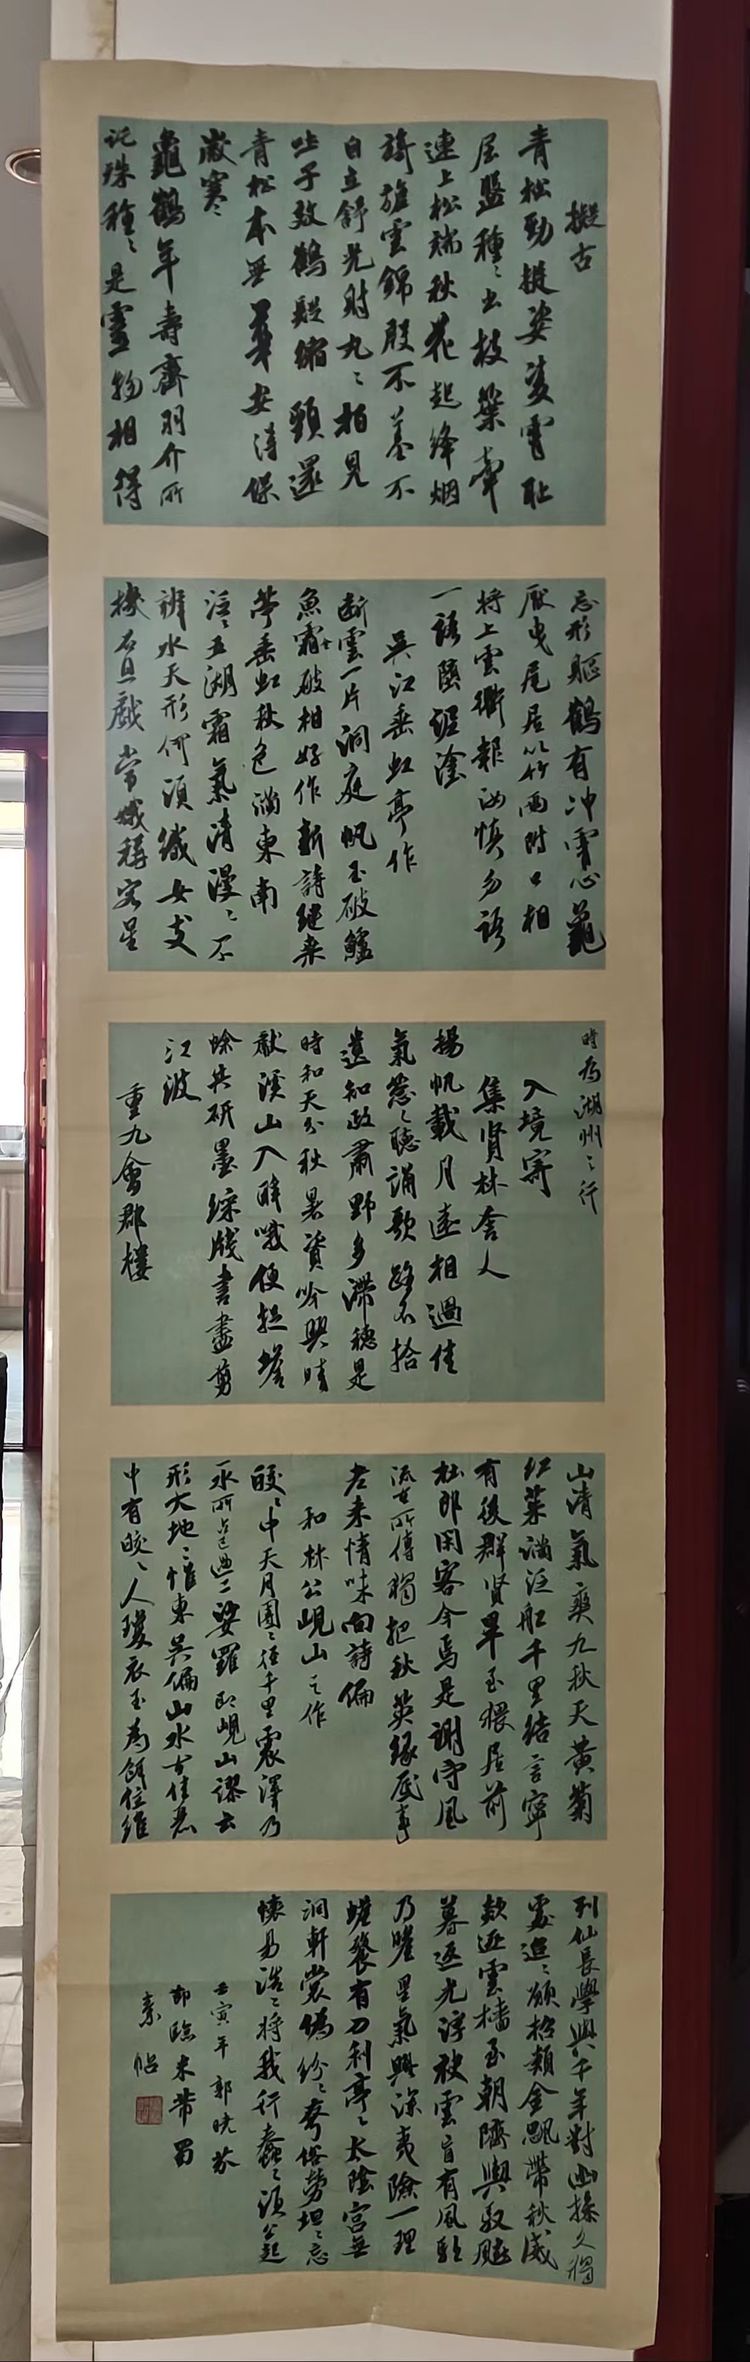 擬古
青松勁挺姿凌霄恥
屈盤種種出枝葉牽
連上松端秋花起絳烟
旖旎雲錦殷不羞不
自立舒光射丸丸柏見
吐子效鶴疑縮頸還
青松本無華安得保
歲寒
龜鶴年壽齊羽介所
託殊種種是靈物相得
忘形軀鶴有冲霄心龜
厭曳尾居以竹兩附口相
將上雲衢報汝慎勿語
一語墮泥塗
吳江垂虹亭作
断雲一片洞庭帆玉破鱸
魚霜破柑好作新詩継桑
苧垂虹秋色滿東南
泛泛五湖霜氣清漫漫不
辨水天形何須織女支
機石且戲常娥稱客星
時為湖州之行
入境寄
集賢林舍人
揚帆載月遠相過佳
氣葱葱聽誦歌路不拾
遺知政肅野多滯穗是
時和天分秋暑資吟興晴
獻溪山入醉哦便捉蟾
蜍共研墨綵牋書盡剪
江波
重九會郡樓
山清氣爽九秋天黃菊
紅茱滿泛船千里結言寧
有後群賢畢至猥居前
杜郎閑客今焉是謝守風
流古所傳獨把秋英緣底事
老来情味向詩偏
和林公峴山之作
皎皎中天月團團徑千里震澤乃
一水所占已過二娑羅即峴山謬云
形大地地惟東吳偏山水古佳麗
中有皎皎人瓊衣玉為餌位維
列仙長學與千年對幽操久獨
處迢迢願招類金飈帶秋威
欻逐雲檣至朝隮輿馭飈
暮返光浮袂雲盲有風馭
乃瞻星氣興深夷險一理
蟾餮有刀利亭亭太陰宮無
洞軒裳偽紛紛夸俗勞坦坦忘
懷易浩浩將我行蠢蠢須公起
壬寅年郭曉芬
节臨米芾蜀
素帖